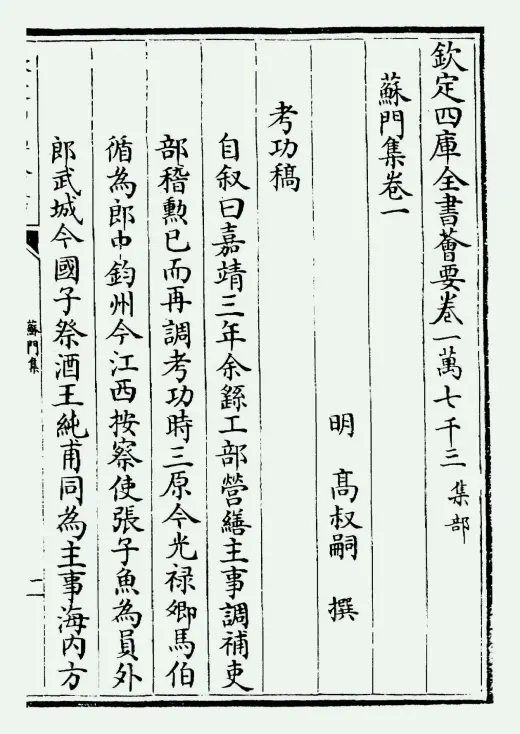 欽定四庫全書薈要卷一萬七千三 集部
蘇門集卷一
明 高叔嗣 撰
考功稿
自叙曰嘉靖三年余繇工部營繕主事調補吏
部稽勲已而再調考功時三原今光禄卿馬伯
循為郎中鈞州今江西按察使張子魚為員外
郎武城今國子祭酒王純甫同為主事海内方
蘇門集